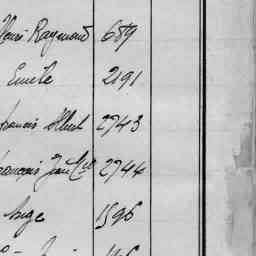 Henri Raymond 689
Emile 2191
Francis Albert 2743
François Jean 2744
Ange 1596